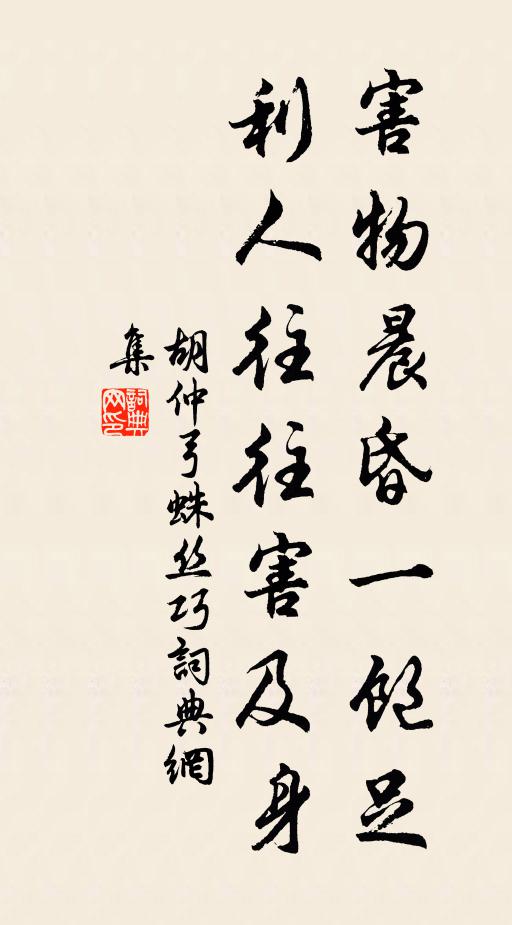 害物晨昏一飽足
利人往往害及身
胡仲弓蛛丝巧詞典網
集
詞典网印